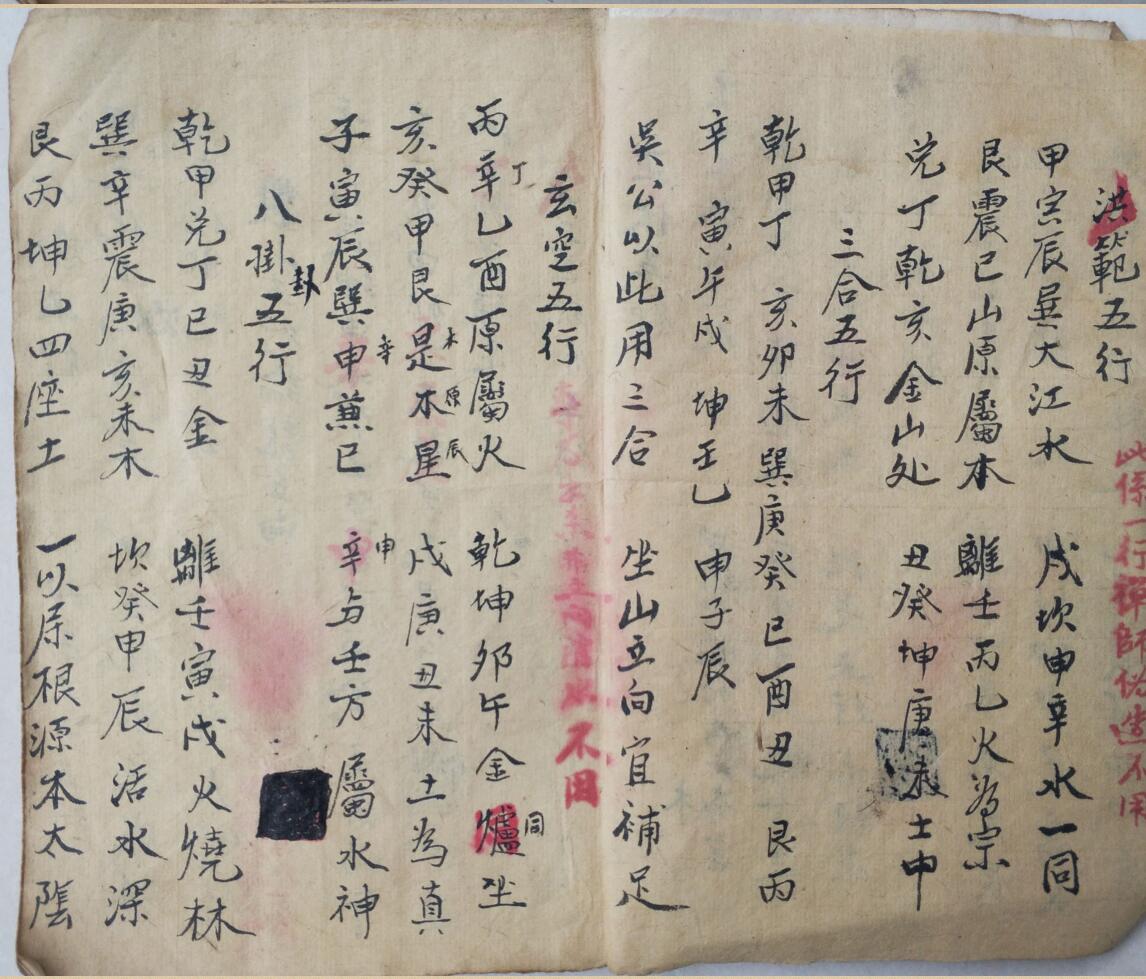 洪範五行
此係一行禪師偽造不用
甲寅辰巽大江水 戌坎申辛水一同
艮震巳山原屬本 離壬丙乙火為宗
兌丁乾亥金山处 丑癸坤庚未土中
三合五行
乾甲丁 亥卯未 巽庚癸 巳酉丑 艮丙
辛 寅午戌 坤壬乙 申子辰
吳公以此用三合 坐山立向宜補足
玄空五行
不用
丙丁辛乙酉原屬火 乾坤卯午金爐坐同
亥癸甲艮是木星 戌庚丑未土為真
木原辰
子寅辰巽申兼巳 辛与壬方屬水神
辛 申
八掛卦五行
乾甲兌丁巳丑金 離壬寅戌火燒林
巽辛震庚亥未木 坎癸申辰活水深
艮丙坤乙四座土 一以原根源本太陰